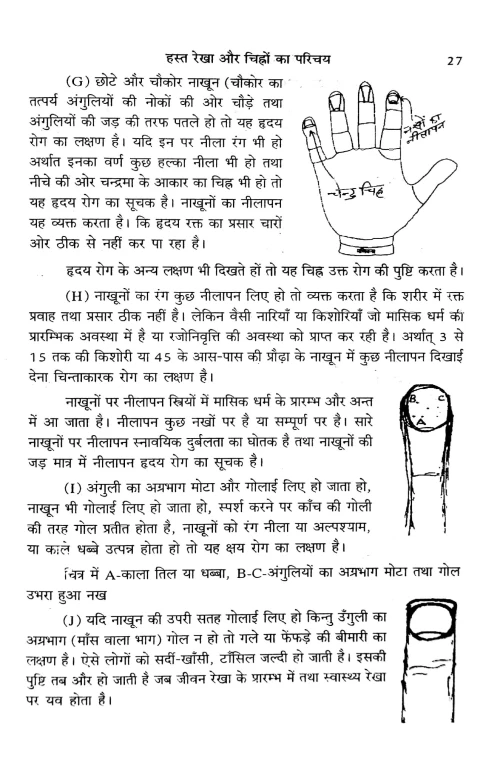 हस्त रेखा और चिह्नों का परिचय 27
(G) छोटे और चौकोर नाखून (चौकोर का
तत्पर्य अंगुलियों की नोकों की ओर चौड़े तथा
अंगुलियों की जड़ की तरफ पतले हो तो यह हृदय
रोग का लक्षण है। यदि इन पर नीला रंग भी हो
अर्थात इनका वर्ण कुछ हल्का नीला भी हो तथा
नीचे की ओर चन्द्रमा के आकार का चिह्न भी हो तो
यह हृदय रोग का सूचक है। नाखूनों का नीलापन
यह व्यक्त करता है। कि हृदय रक्त का प्रसार चारों
ओर ठीक से नहीं कर पा रहा है।
नखों का
नीलापन
चन्द्र चिह्न
हृदय रोग के अन्य लक्षण भी दिखते हों तो यह चिह्न उक्त रोग की पुष्टि करता है।
(H) नाखूनों का रंग कुछ नीलापन लिए हो तो व्यक्त करता है कि शरीर में रक्त
प्रवाह तथा प्रसार ठीक नहीं है। लेकिन वैसी नारियाँ या किशोरियाँ जो मासिक धर्म की
प्रारम्भिक अवस्था में है या रजोनिवृत्ति की अवस्था को प्राप्त कर रही है। अर्थात् 3 से
15 तक की किशोरी या 45 के आस-पास की प्रौढ़ा के नाखून में कुछ नीलापन दिखाई
देना चिन्ताकारक रोग का लक्षण है।
नाखूनों पर नीलापन स्त्रियों में मासिक धर्म के प्रारम्भ और अन्त
में आ जाता है। नीलापन कुछ नखों पर है या सम्पूर्ण पर है। सारे
नाखूनों पर नीलापन स्नावयिक दुर्बलता का घोतक है तथा नाखूनों की
जड़ मात्र में नीलापन हृदय रोग का सूचक है।
B C
A
(I) अंगुली का अग्रभाग मोटा और गोलाई लिए हो जाता हो,
नाखून भी गोलाई लिए हो जाता हो, स्पर्श करने पर काँच की गोली
की तरह गोल प्रतीत होता है, नाखूनों को रंग नीला या अल्पश्याम,
या काले धब्बे उत्पन्न होता हो तो यह क्षय रोग का लक्षण है।
चित्र में A-काला तिल या धब्बा, B-C-अंगुलियों का अग्रभाग मोटा तथा गोल
उभरा हुआ नख
(J) यदि नाखून की उपरी सतह गोलाई लिए हो किन्तु उँगुली का
अग्रभाग (माँस वाला भाग) गोल न हो तो गले या फेंफड़े की बीमारी का
लक्षण है। ऐसे लोगों को सर्दी-खाँसी, टाँसिल जल्दी हो जाती है। इसकी
पुष्टि तब और हो जाती है जब जीवन रेखा के प्रारम्भ में तथा स्वास्थ्य रेखा
पर यव होता है।